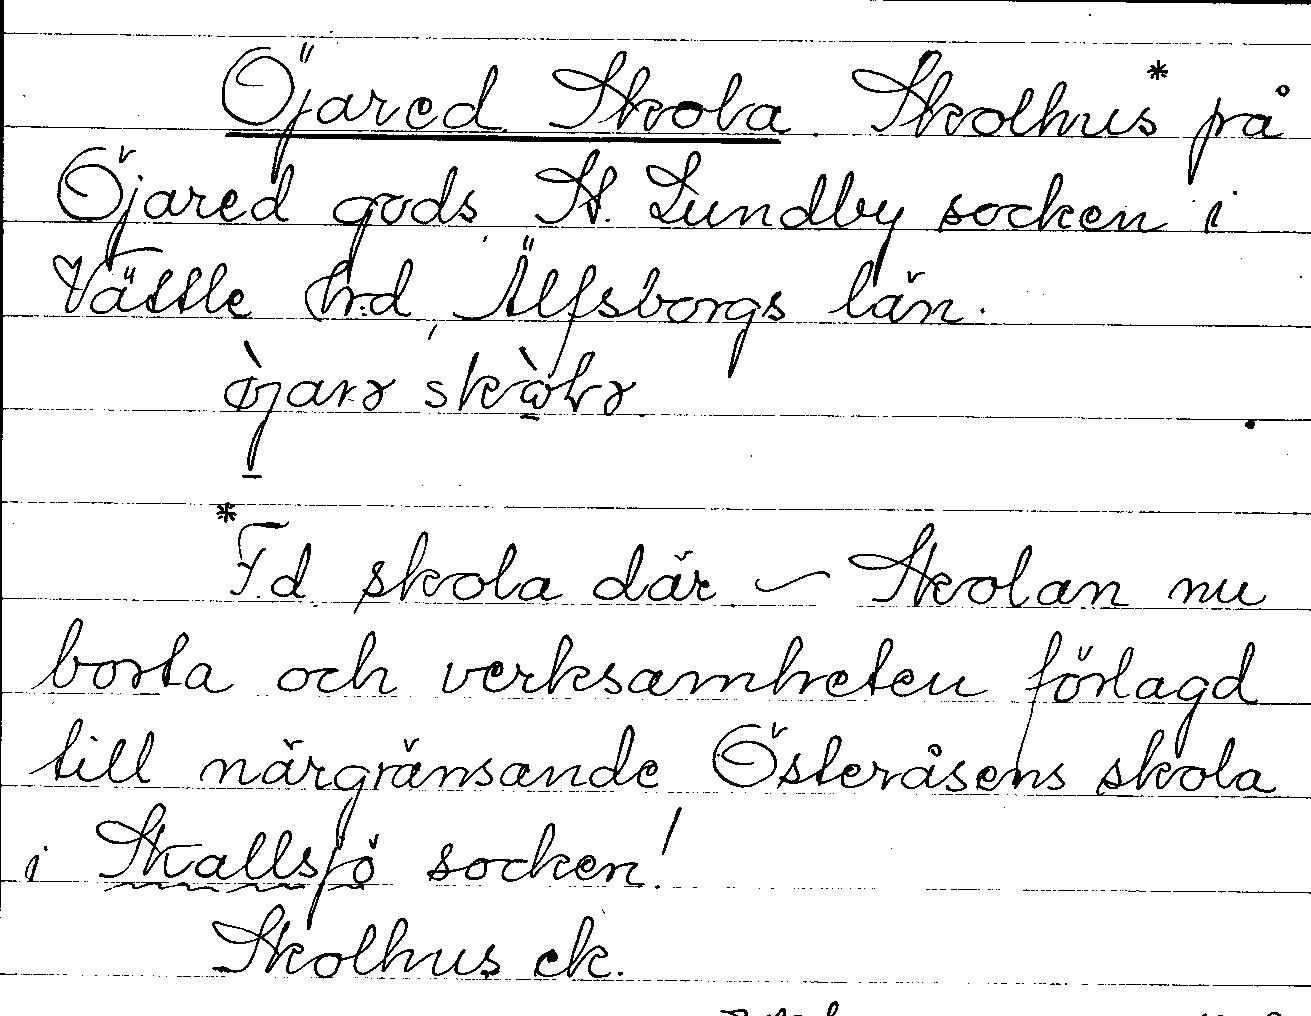 Öjared Skola. Skolhus* på
Öjared gods, St. Lundby socken i
Vättle hd, Älfsborgs län.
*Fd skola där – Skolan nu
borta och verksamheten förlagd
till närgränsande Österåsens skola
i Skallsjö socken!
Skolhus ek.